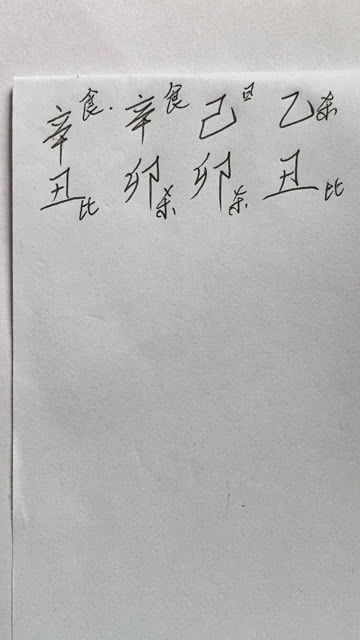 辛食. 辛食 己日 乙杀
丑比 卯杀 卯杀 丑比